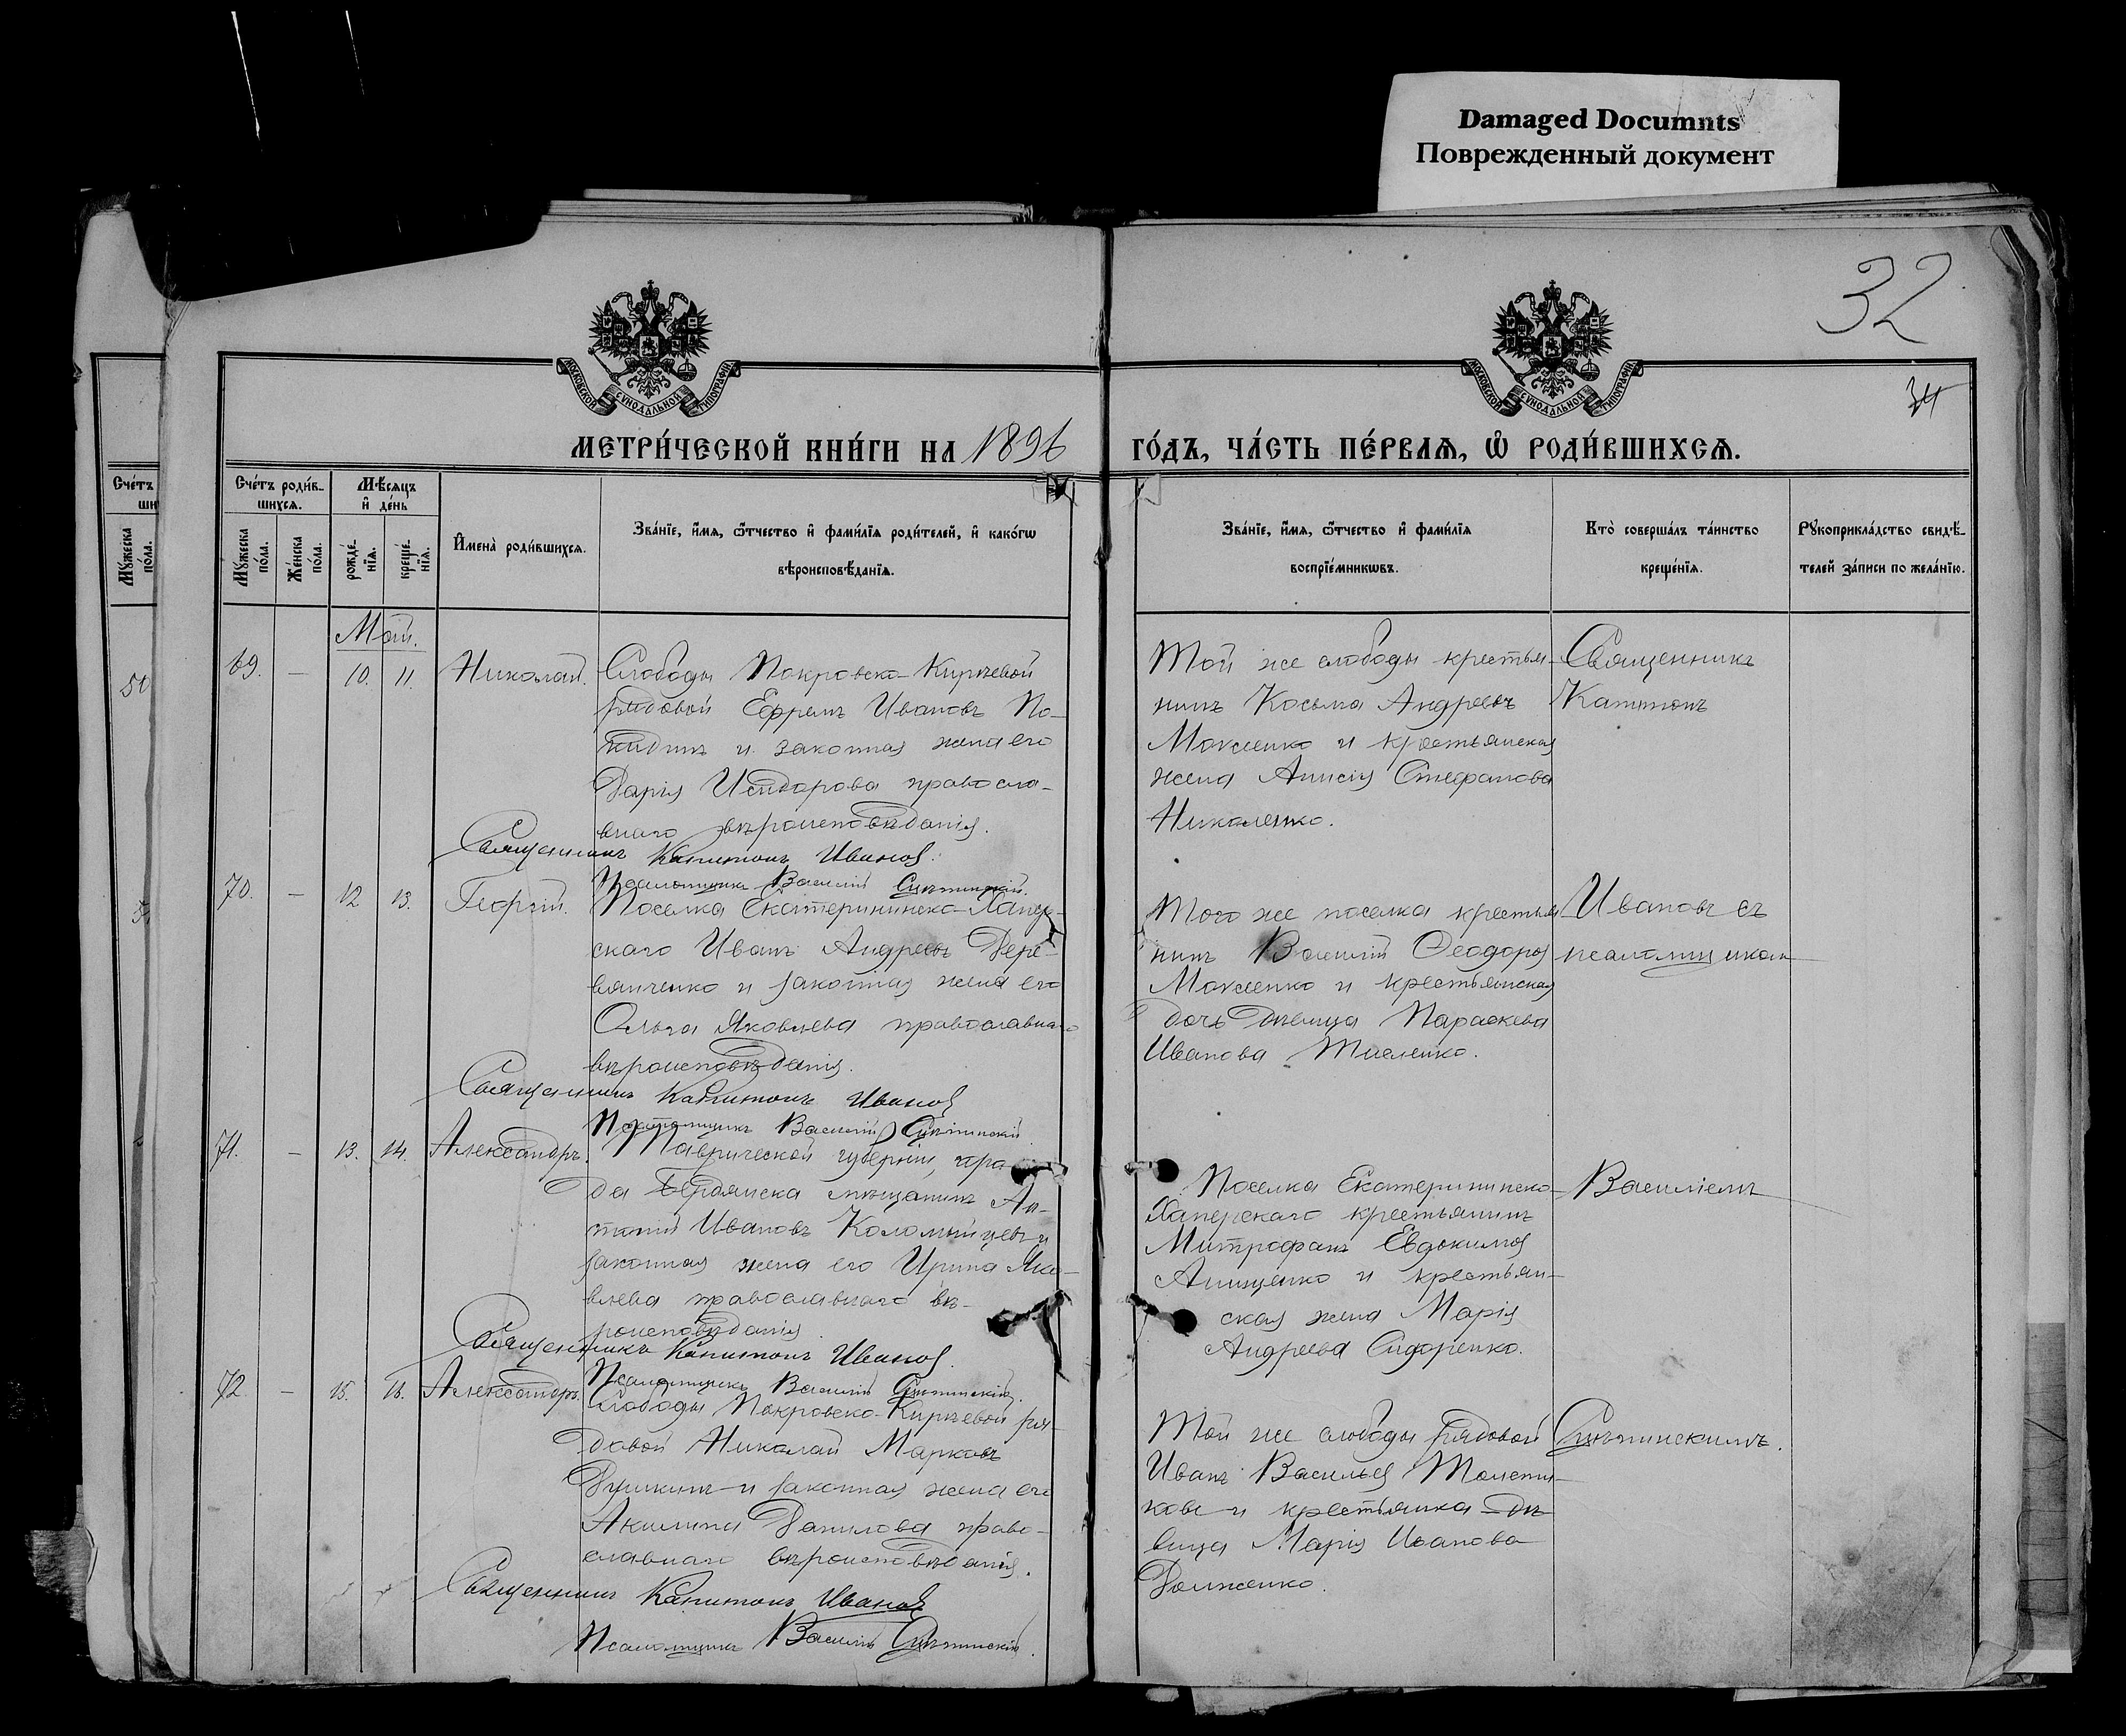 Damaged Documnts
Поврежденный документ
32
34
МОСКОВСКОЙ СѴНОДАЛЬНОЙ ТИПОГРАФІИ
МОСКОВСКОЙ СѴНОДАЛЬНОЙ ТИПОГРАФІИ
МЕТРИ́ЧЕСКОЙ КНИ́ГИ НА 1896 ГО́ДЪ, ЧА́СТЬ ПЕ́РВАѦ, Ѡ҆ РОДИ́ВШИХСѦ.
Сче́тъ роди́в-
шихсѧ.
Мѣ́сѧцъ
и҆ де́нь
Мꙋ́жеска
по́ла.
Же́нска
по́ла.
рожде́-
нїѧ.
креще́-
нїѧ.
И҆мена̀ роди́вшихсѧ.
Зва́нїе, и҆́мѧ, ѻ҆́тчество и҆ фами́лїѧ роди́телей, и҆ како́гѡ
вѣроисповѣ́данїѧ.
Зва́нїе, и҆́мѧ, ѻ҆́тчество и҆ фами́лїѧ
воспрїе́мникѡвъ.
Кто̀ соверша́лъ та́инство
креще́нїѧ.
Рꙋкоприкла́дство свидѣ́-
телей за́писи по жела́нїю.
Май.
69. — 10. 11. Николай. Слободы Покровско-Кирѣевой
рядовой Ефремъ Ивановъ По-
и законная жена его
Дарія Исидорова правосла-
внаго вѣроисповѣданія.
Священникъ Капитонъ Ивановъ.
Псаломщикъ Василій
Той же слободы крестья-
нинъ Косьма Андреевъ
Моисеенко и крестьянская
жена Анисія Стефанова
Николенко.
Священникъ
Капитонъ
70. — 12 13. Георгій. Поселка Екатерининско-Хапер-
скаго Иванъ Андреевъ Дере-
вянченко и законная жена его
Ольга Яковлева православнаго
вѣроисповѣданія.
Священникъ Капитонъ Ивановъ
Псаломщикъ Василій
Того же поселка крестья-
нинъ Василій Ѳеодоровъ
Моисеенко и крестьянская
дочь дѣвица Параскева
Иванова
Ивановъ съ
псаломщикомъ
71. — 13. 14. Александръ. Таврической губерніи, гра-
да Бердянска мѣщанинъ Ан-
тоній Ивановъ Коломійцевъ и
законная жена его Ирина Яко-
влева православнаго вѣ-
роисповѣданія
Священникъ Капитонъ Ивановъ.
Псаломщикъ Василій
Поселка Екатерининско-
Хаперскаго крестьянинъ
Митрофанъ Евдокимовъ
Анищенко и крестьян-
ская жена Марія
Андреева Сидоренко.
Василіемъ
72. — 15. 16. Александръ. Слободы Покровско-Кирѣевой ря-
довой Николай Марковъ
и законная жена его
Акилина Данилова право-
славнаго вѣроисповѣданія.
Священникъ Капитонъ Ивановъ
Псаломщикъ Василій
Той же слободы рядовой
Иванъ Васильевъ
и крестьянка дѣ-
вица Марія Иванова
Долженко.